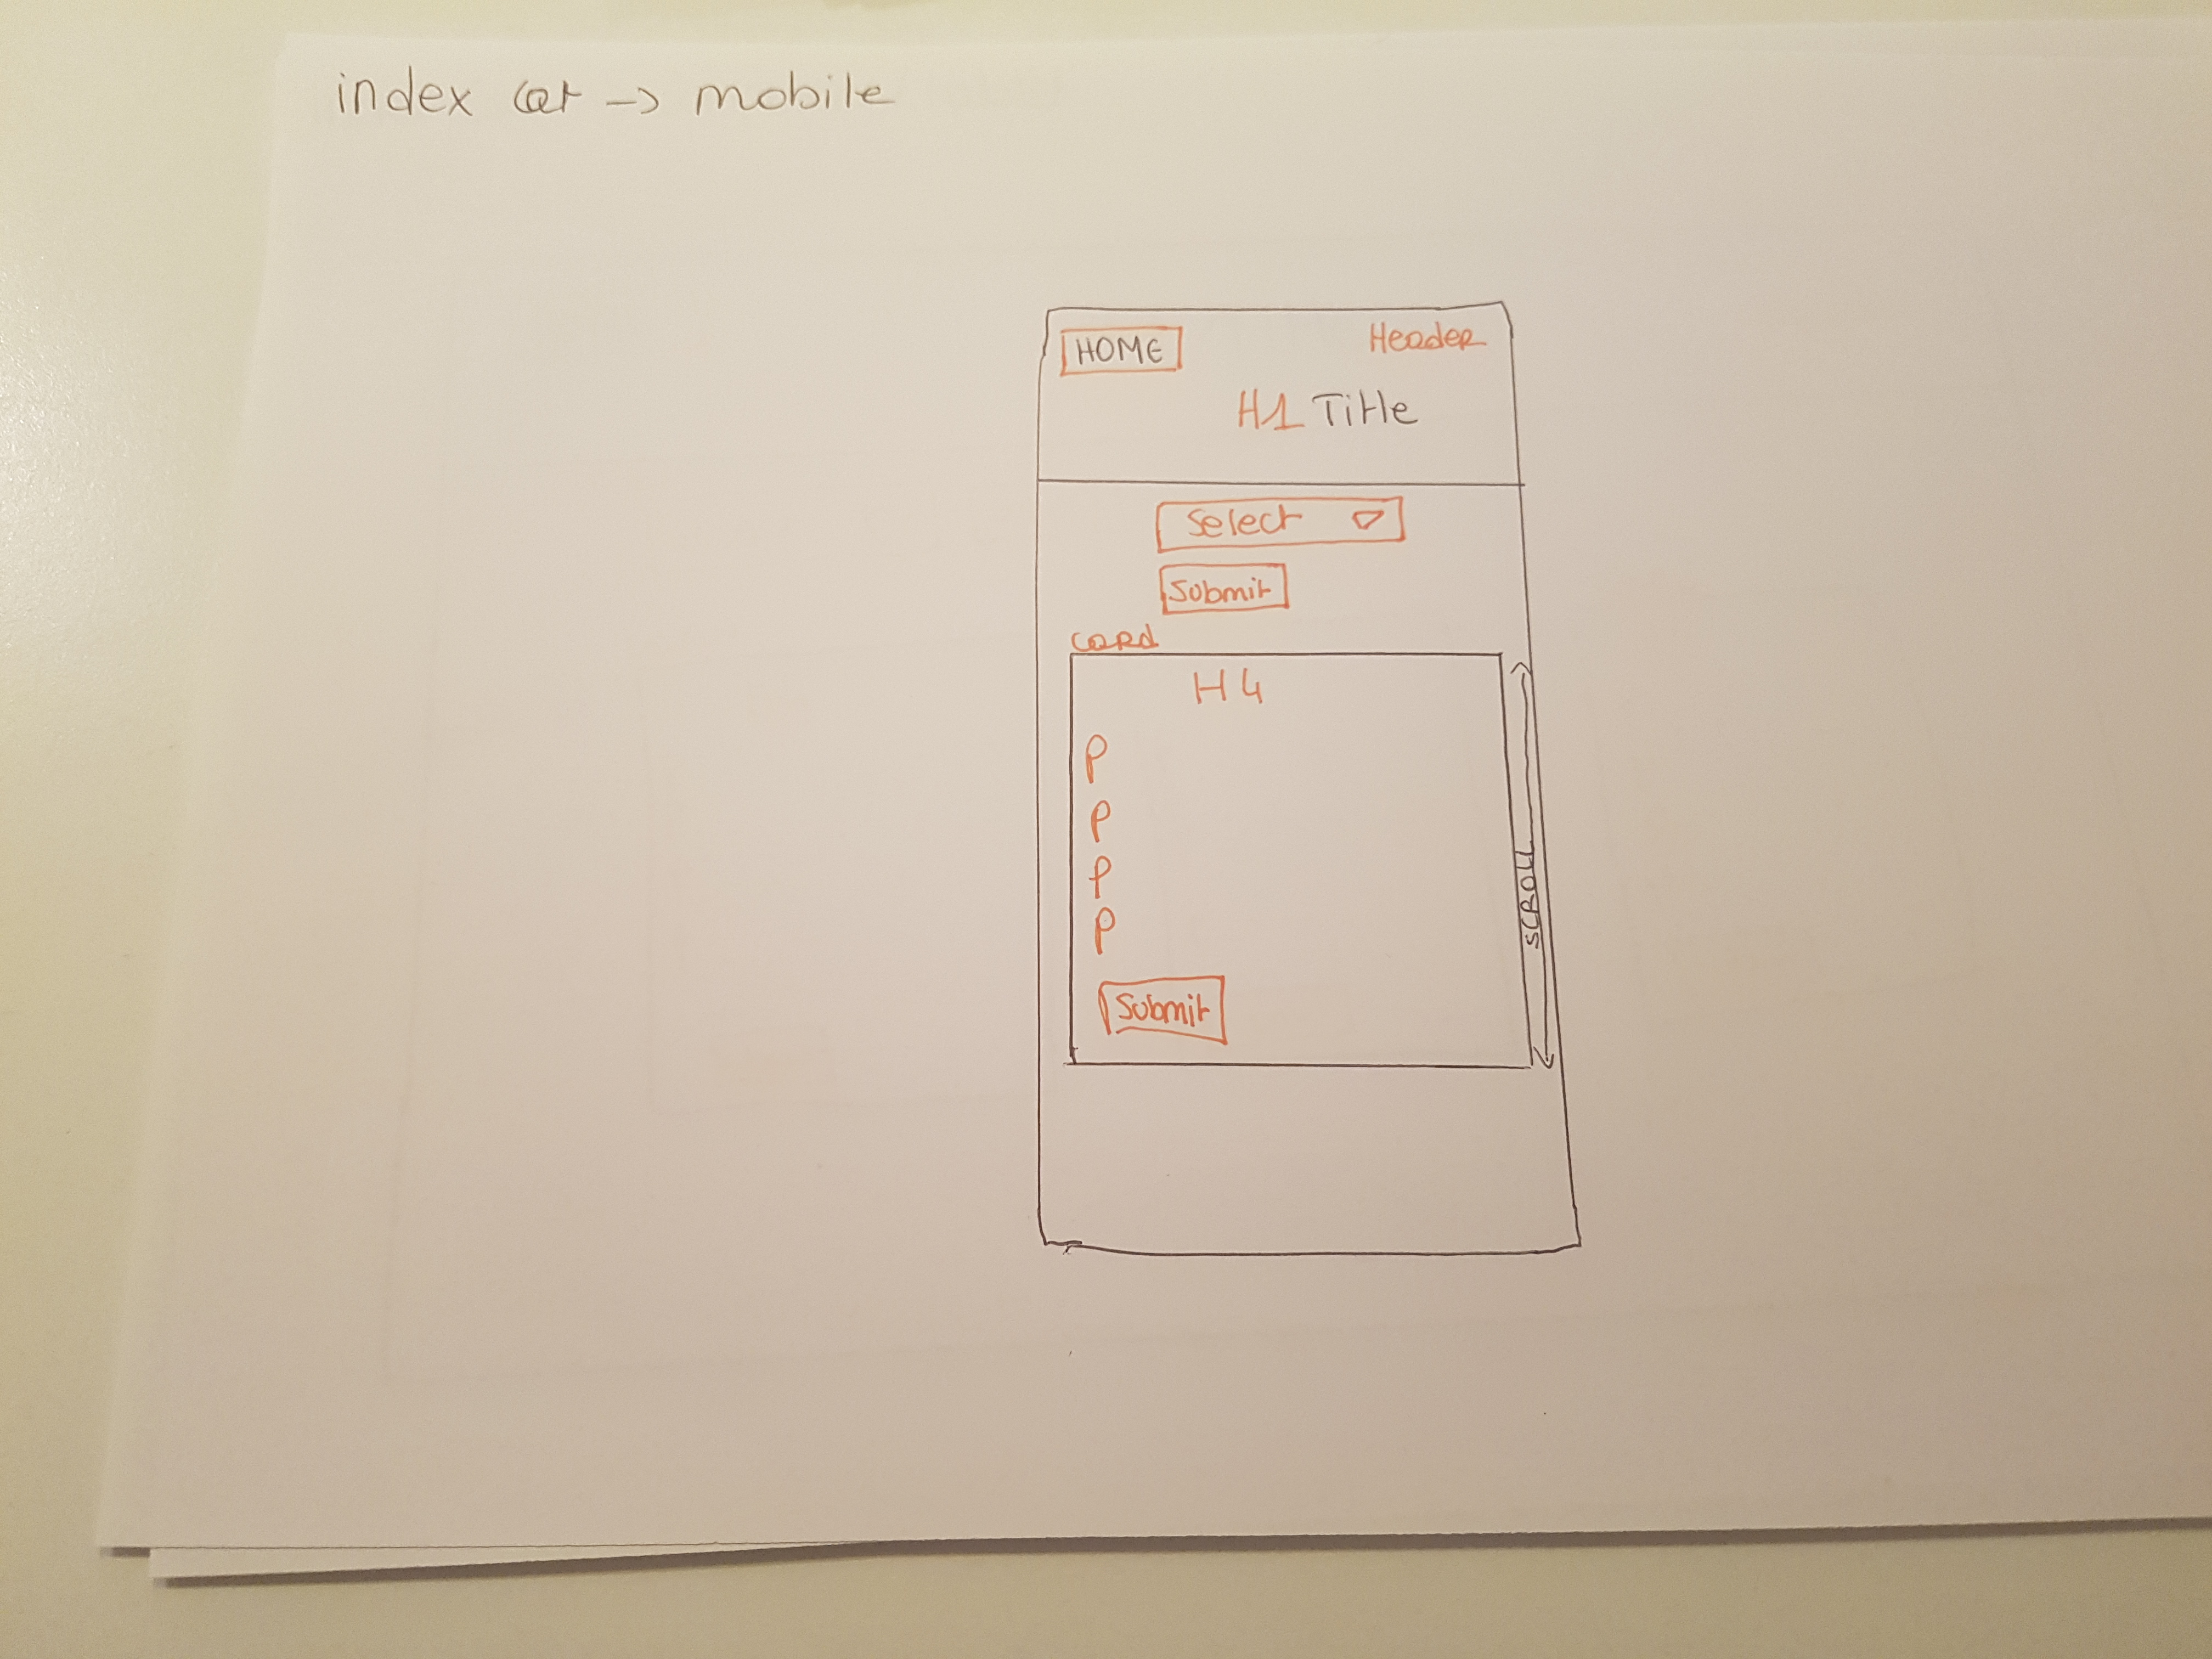 index cat -> mobile
HOME
Header
H1 Title
Select
Submit
CARD
H4
P
P
P
P
Submit
SCROLL